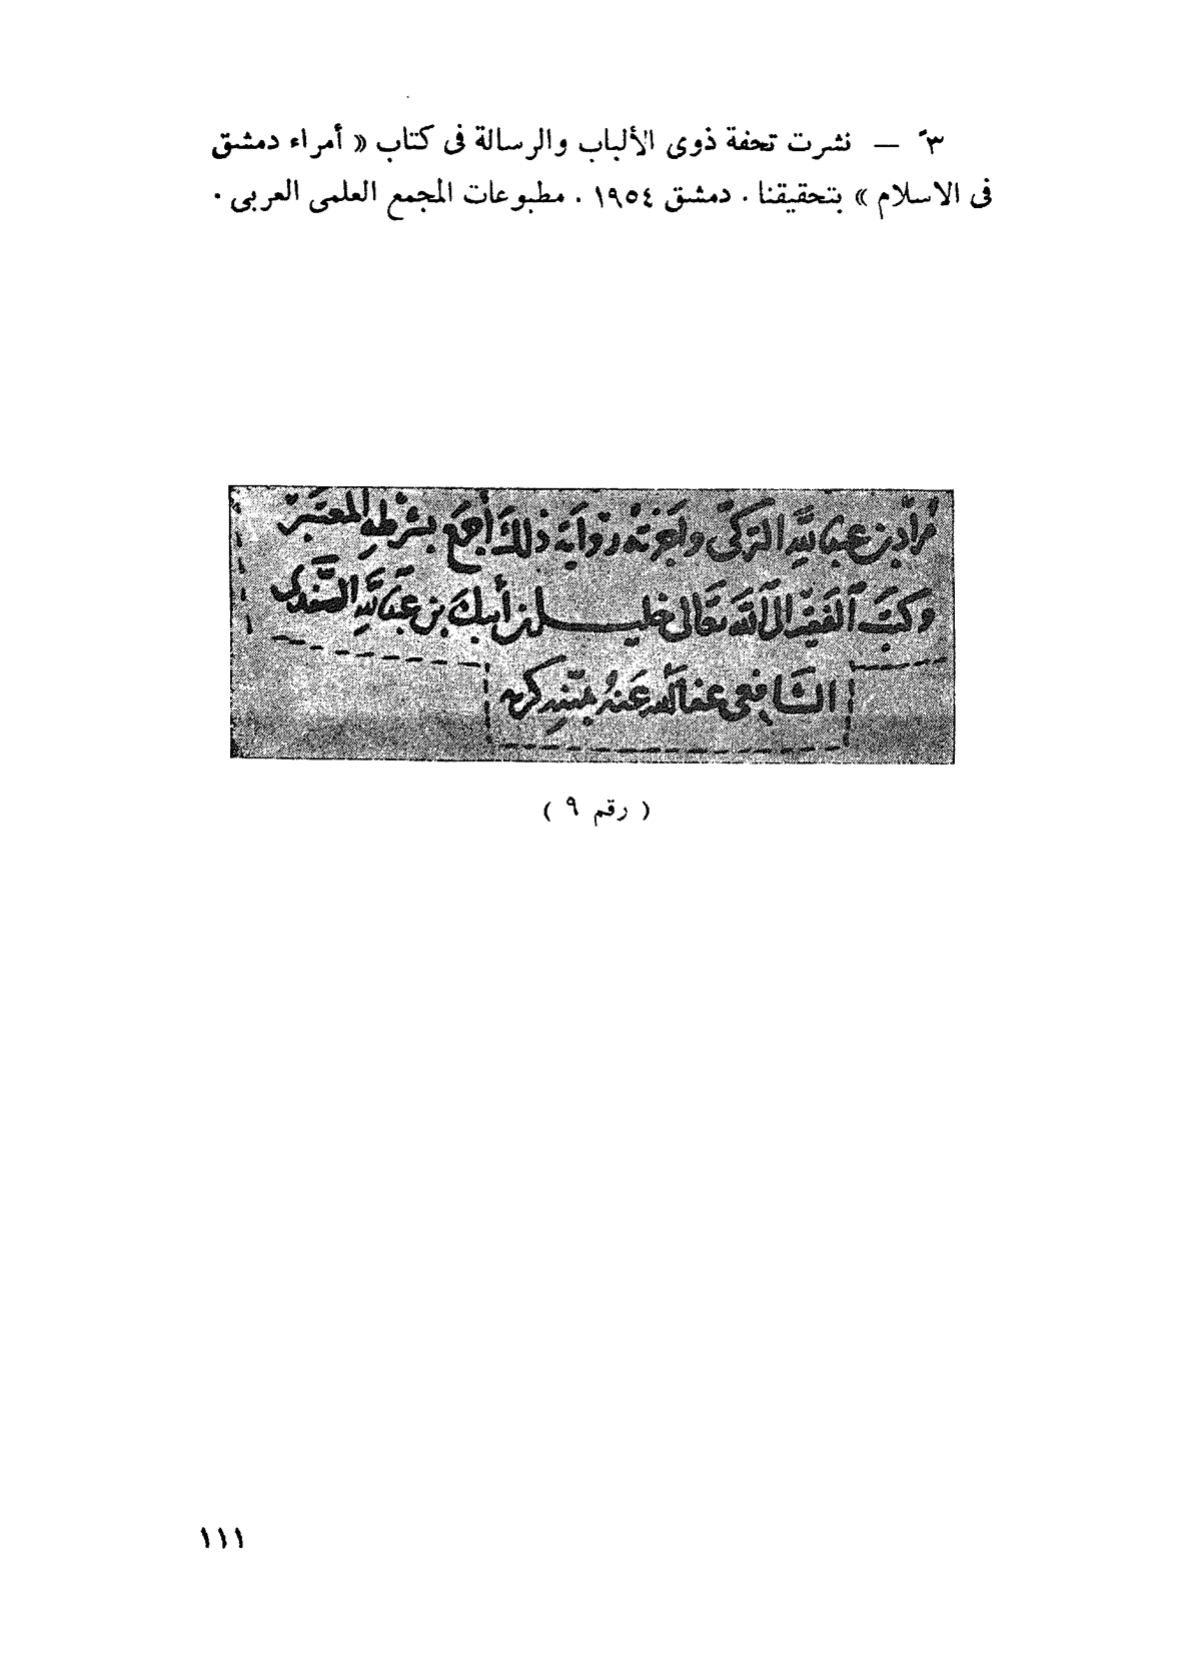 ٣ً — نشرت تحفة ذوى الألباب والرسالة فى كتاب « أمراء دمشق
فى الاسلام » بتحقيقنا . دمشق ١٩٥٤ . مطبوعات المجمع العلمى العربى .
مُراد بن عبد الله التركى واجزته رواية ذلك أجمع بشرطه المعتبر
وكتب الفقير الى الله تعالى خليل بن أيبك بن عبد الله الصفدى
الشافعى عفا الله عنه بمنه وكرمه
( رقم ٩ )
١١١